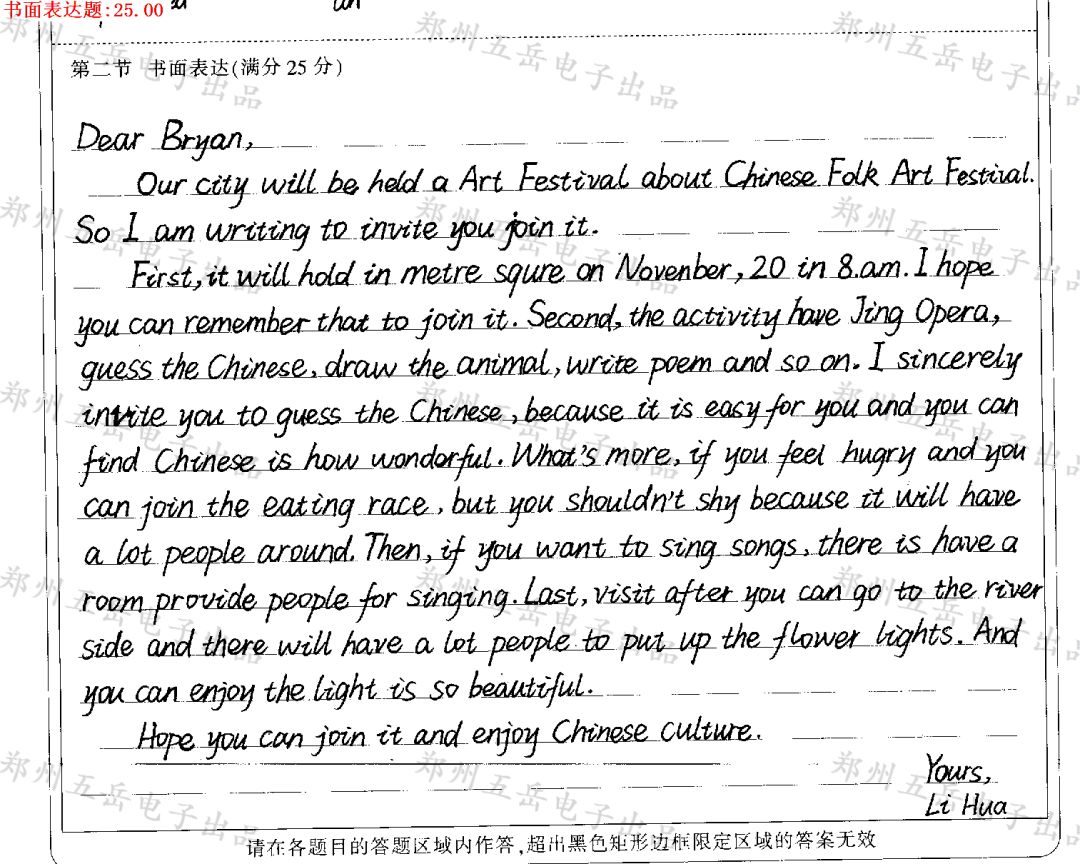 书面表达题:25.00
第二节 书面表达(满分25分)
Dear Bryan,
Our city will be held a Art Festival about Chinese Folk Art Festival.
So I am writing to invite you join it.
First, it will hold in metre squre on Novenber, 20 in 8.am. I hope
you can remember that to join it. Second, the activity have Jing Opera,
guess the Chinese, draw the animal, write poem and so on. I sincerely
invite you to guess the Chinese, because it is easy for you and you can
find Chinese is how wondorful. What's more, if you feel hugry and you
can join the eating race, but you shouldn't shy because it will have
a lot people around. Then, if you want to sing songs, there is have a
room provide people for singing. Last, visit after you can go to the river
side and there will have a lot people to put up the flower lights. And
you can enjoy the light is so beautiful.
Hope you can join it and enjoy Chinese culture.
Yours,
Li Hua
请在各题目的答题区域内作答,超出黑色矩形边框限定区域的答案无效
郑州五岳电子出品